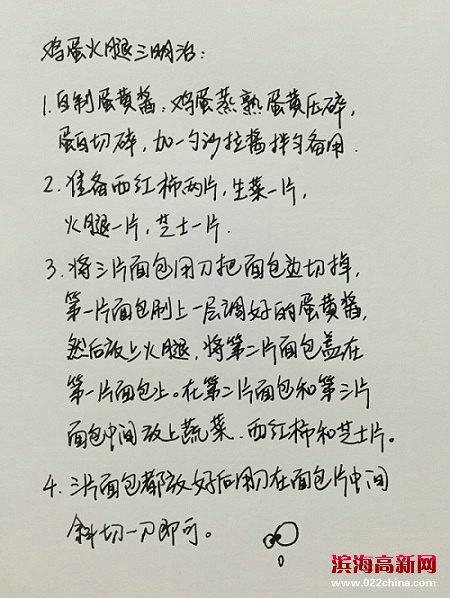 鸡蛋火腿三明治：
1. 自制蛋黄酱：鸡蛋蒸熟蛋黄压碎，
蛋白切碎，加一勺沙拉酱拌匀备用.
2. 准备西红柿两片，生菜一片，
火腿一片，芝士一片.
3. 将三片面包用刀把面包边切掉，
第一片面包刷上一层调好的蛋黄酱，
然后放上火腿，将第二片面包盖在
第一片面包上。在第二片面包和第三片
面包中间放上蔬菜、西红柿和芝士片。
4. 三片面包都放好后用刀在面包片中间
斜切一刀即可。
滨海高新网
www.022china.com